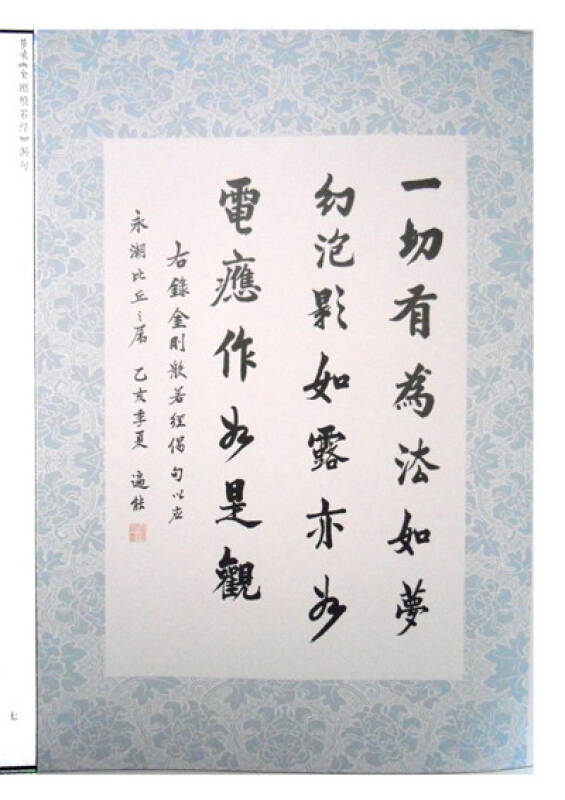 一切有為法如夢
幻泡影如露亦如
電應作如是觀
右錄金剛般若經偈句以应
永潮比丘之属 乙亥季夏 遍能
七